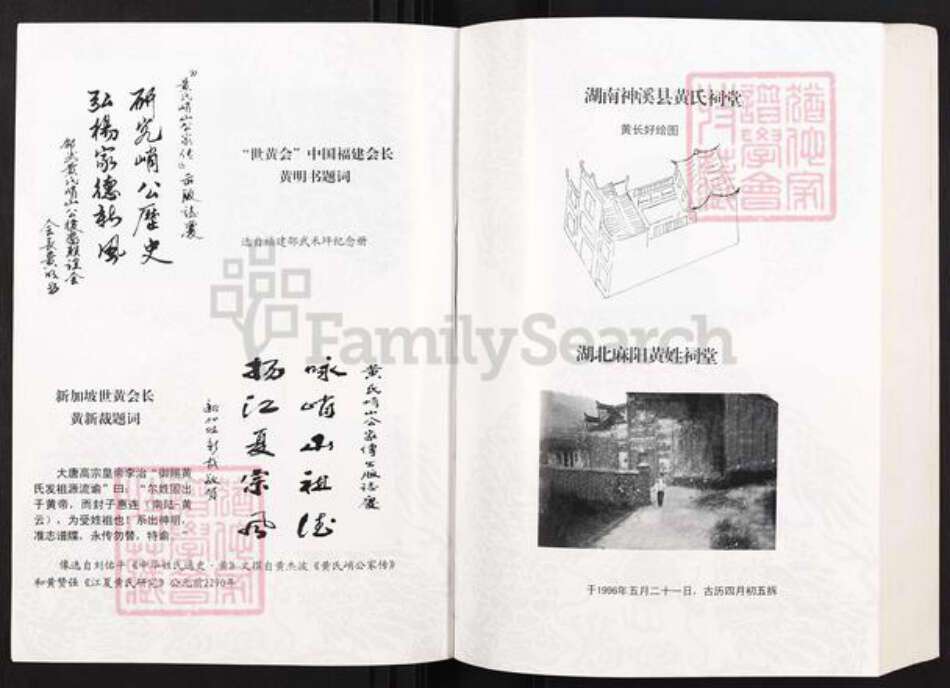 《黄氏峭山公家传》再版志庆
研究峭公歷史
弘楊家德新風
邵武黄氏峭山公後裔联谊会
会長黄明书
“世黄会”中国福建会长
黄明书题词
选自福建邵武禾坪纪念册
黄氏峭山公家傳出版誌慶
咏峭山祖德
揚江夏宗風
新加坡世黄会长
黄新裁题词
大唐高宗皇帝李治“御赐黄
氏发祖源流谕”曰：“尔姓固出
子黄帝，而封子惠连（南陆-黄
云），为受姓祖也！系出神明，
准志谱牒，永传勿替，特谕。
像选自刘佑平《中华姓氏通史·黄》文摆自黄杰波《黄氏峭公家传》
和黄赞强《江夏黄氏研究》公元前2290年
湖南神溪县黄氏祠堂
黄长好绘图
湖北麻阳黄姓祠堂
于1996年五月二十一日，古历四月初五拆
FamilySearch